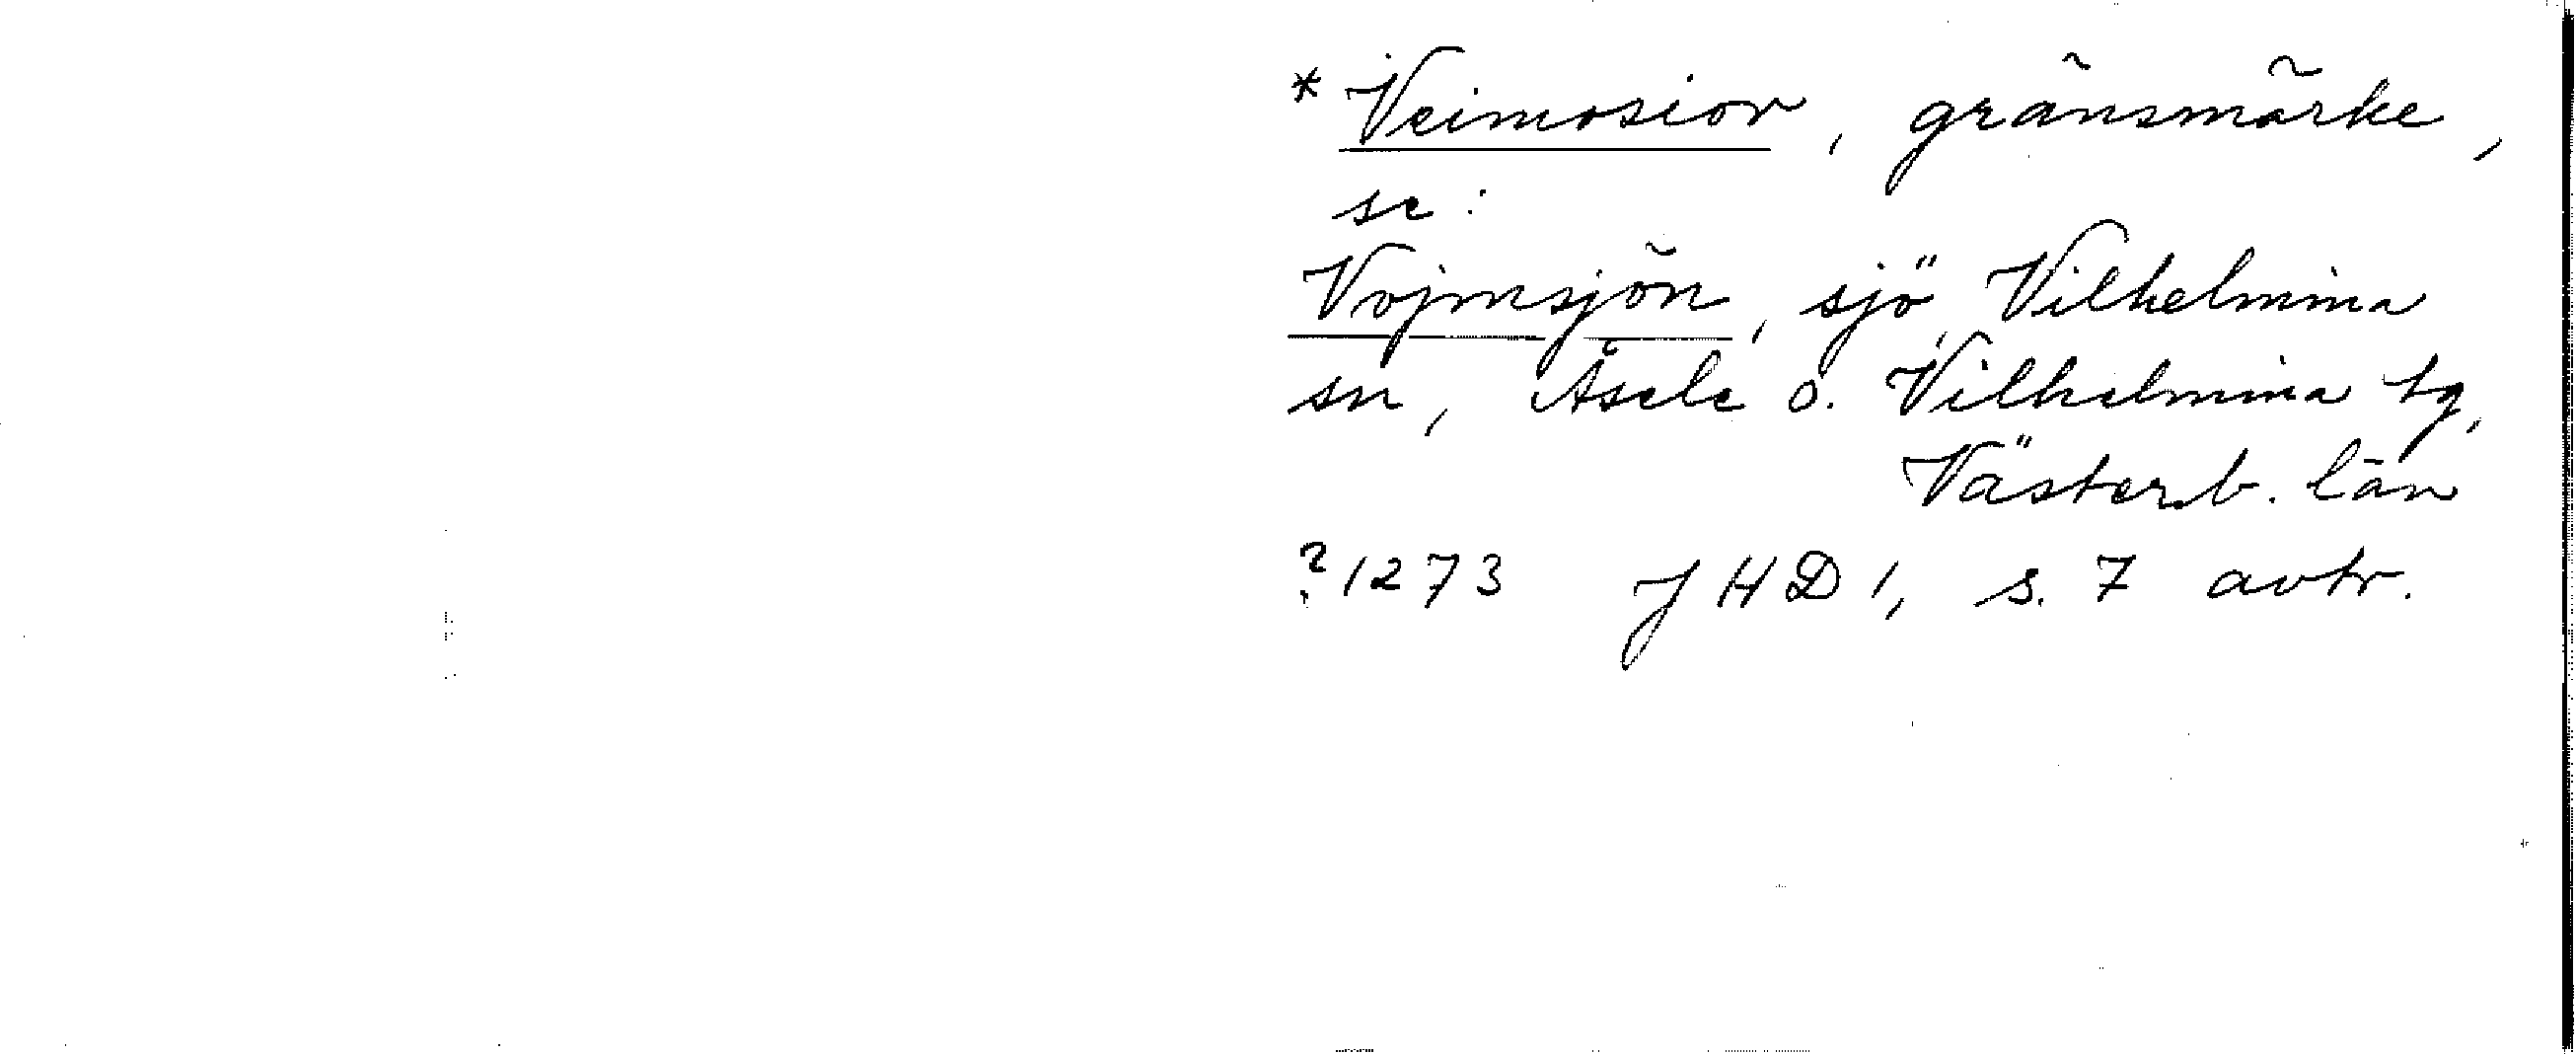 * Veimosior, gränsmärke,
se:
Vojmsjön, sjö, Vilhelmina
sn, Åsele o. Vilhelmina tg,
Västerb. län
? 1273 JHD 1, s. 7 avtr.